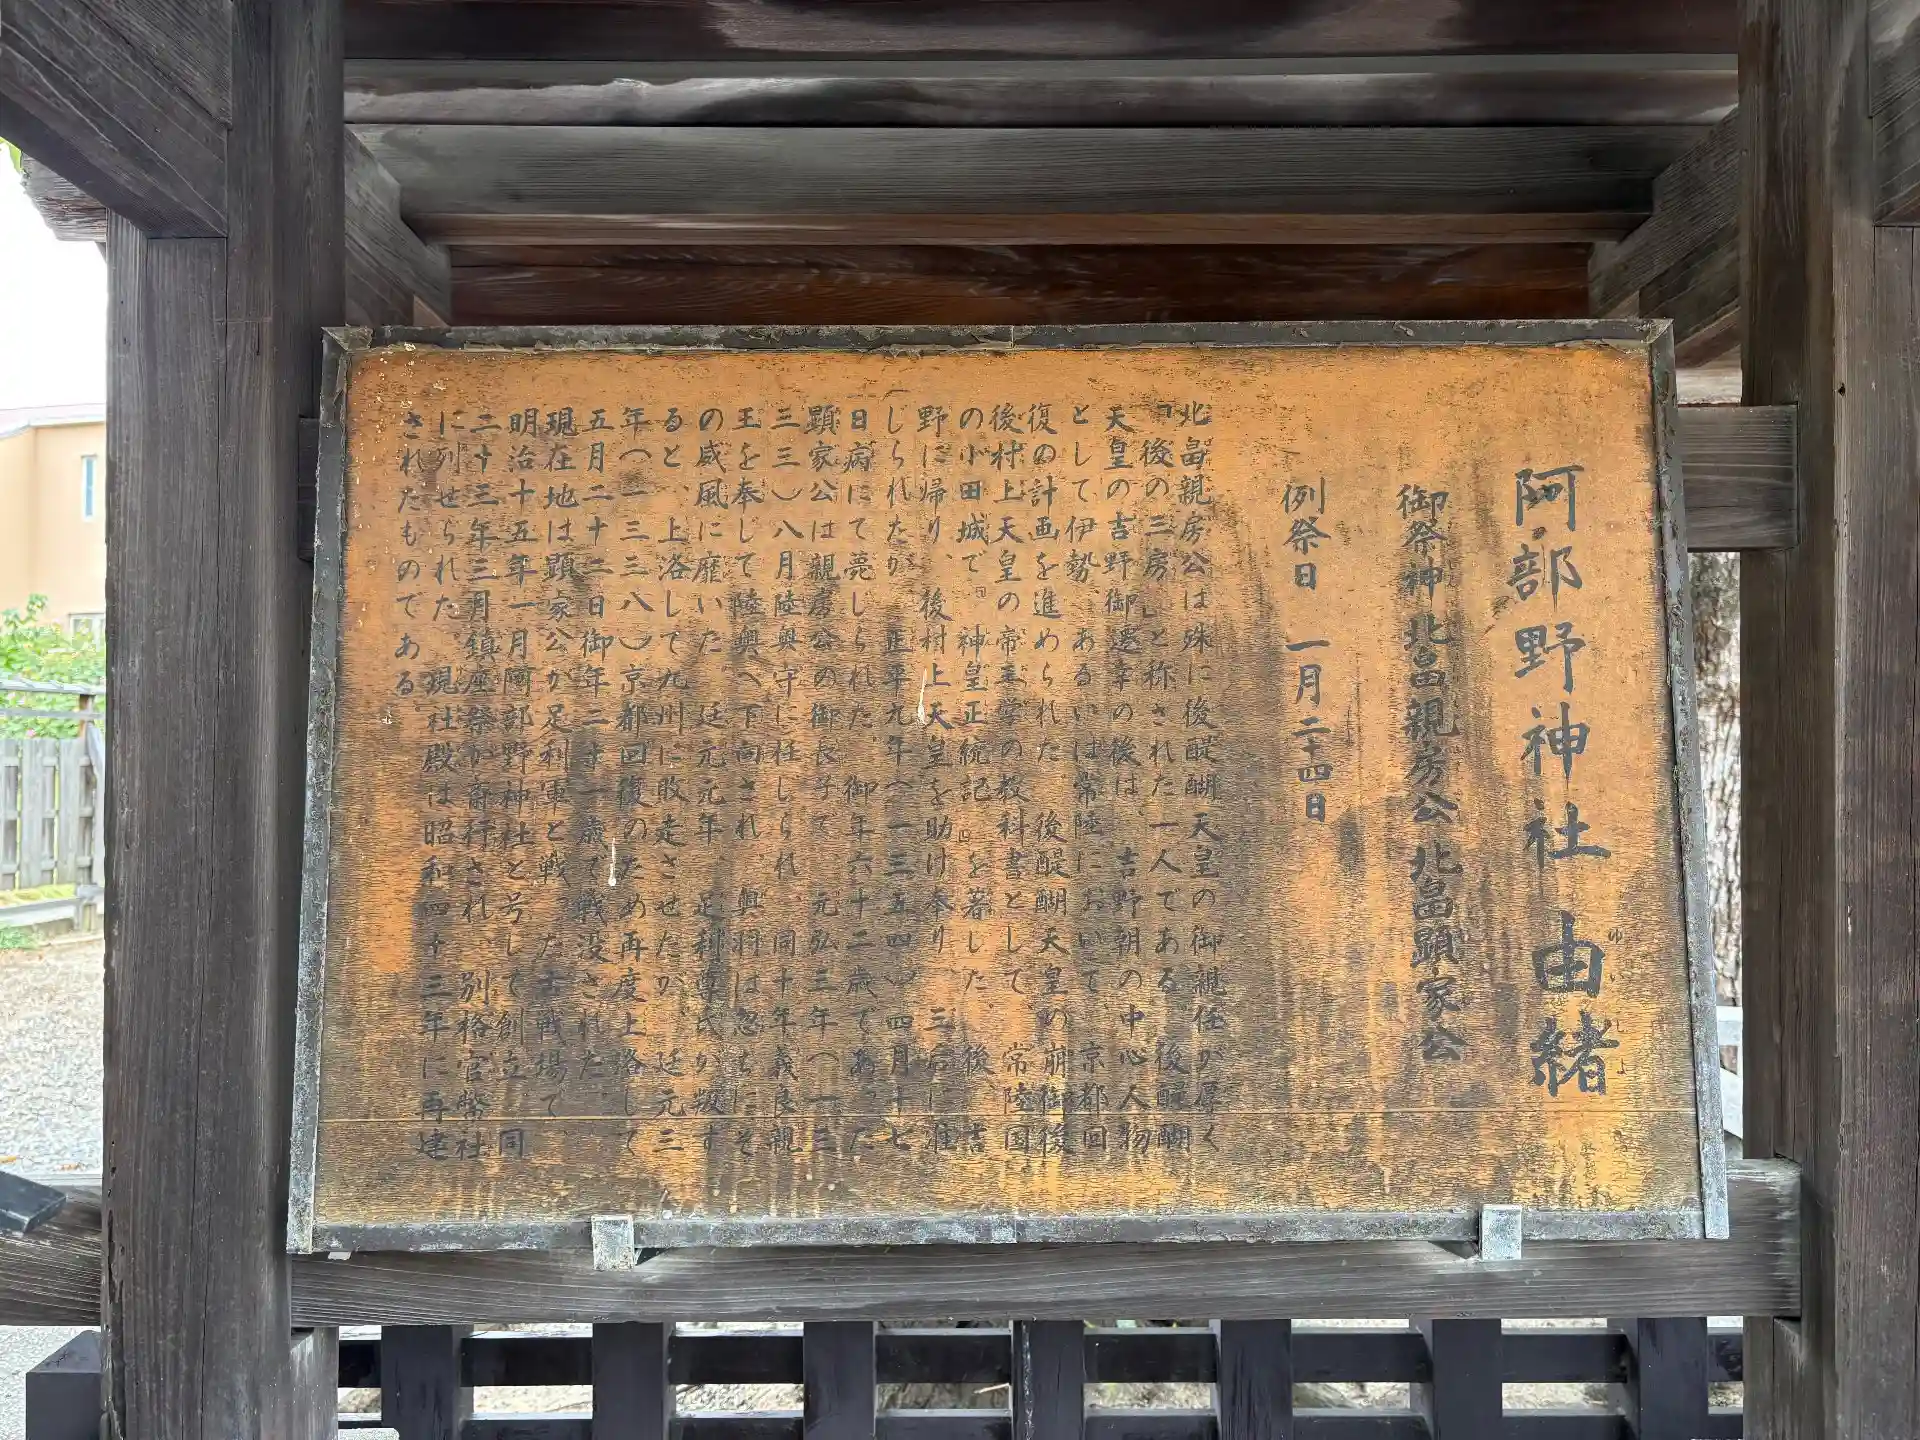 阿部野神社由緒
ゆいしょ
御祭神 北畠親房公 北畠顕家公
例祭日 一月二十四日
北畠親房公は殊に後醍醐天皇の御親任が厚く
「後の三房」と称された一人である。後醍醐
天皇の吉野御遷幸の後は、吉野朝の中心人物
として伊勢、あるいは常陸において、京都回
復の計画を進められた。後醍醐天皇の崩御後
後村上天皇の帝王学の教科書として、常陸国
の小田城で『神皇正統記』を著した。後、吉
野に帰り、後村上天皇を助け奉り、三后に准
じられたが、正平九年(一三五四)四月十七
日病にて薨じられた。御年六十二歳であった
顕家公は親房公の御長子で、元弘三年(一三
三三)八月陸奥守に任じられ、同十年義良親
王を奉じて陸奥へ下向され、奥羽は忽ちにそ
の威風に靡いた。延元元年、足利尊氏が叛す
ると、上洛して九州に敗走させたが、延元三
年(一三三八)京都回復のため再度上洛して
五月二十二日御年二十一歳で戦没された。
現在地は顕家公が足利軍と戦った古戦場で、
明治十五年一月阿部野神社と号して創立、同
二十三年三月鎮座祭が斎行され、別格官幣社
に列せられた。現社殿は昭和四十三年に再建
されたものである。